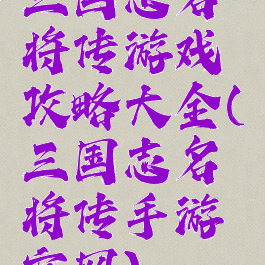 三国志名
将传游戏
攻略大全(
三国志名
将传手游
官网)